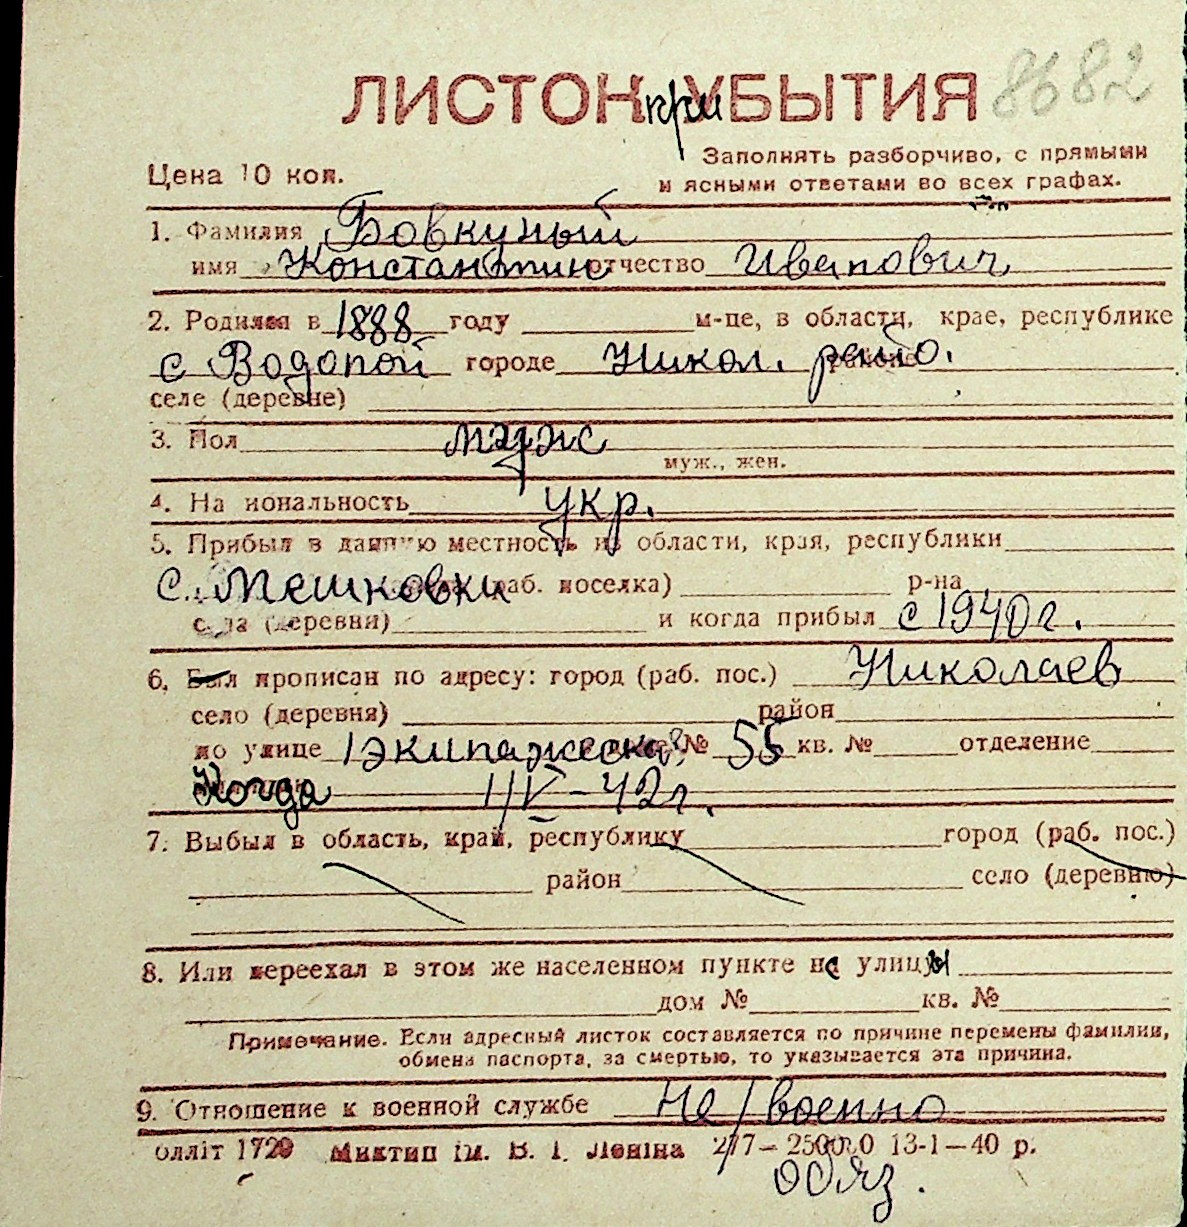 8682
ЛИСТОК при УБЫТИЯ
Заполнять разборчиво, с прямыми
Цена 10 коп.
и ясными ответами во всех графах.
1. Фамилия Бовкуный
имя Константин отчество Иванович
2. Родился в 1888 году м-це, в области, крае, республике
с Водопой городе Никол. районе
селе (деревне)
3. Пол мужс
муж., жен.
4. Национальность укр.
5. Прибыл в данную местность из области, края, республики
с. Мешковки (раб. поселка) р-на
села (деревни) и когда прибыл с 1940 г.
6. Был прописан по адресу: город (раб. пос.) Николаев
село (деревня) район
по улице 1 Экипажеска? № 55 кв. № отделение
Когда 1/V-42 г.
7. Выбыл в область, край, республику город (раб. пос.)
район село (деревню)
8. Или переехал в этом же населенном пункте на улицы
дом № кв. №
Примечание. Если адресный листок составляется по причине перемены фамилии,
обмена паспорта, за смертью, то указывается эта причина.
9. Отношение к военной службе не/военно
олліт 1729 Миктип ім. В. І. Леніна 277—250000 13-1—40 р.
обяз.